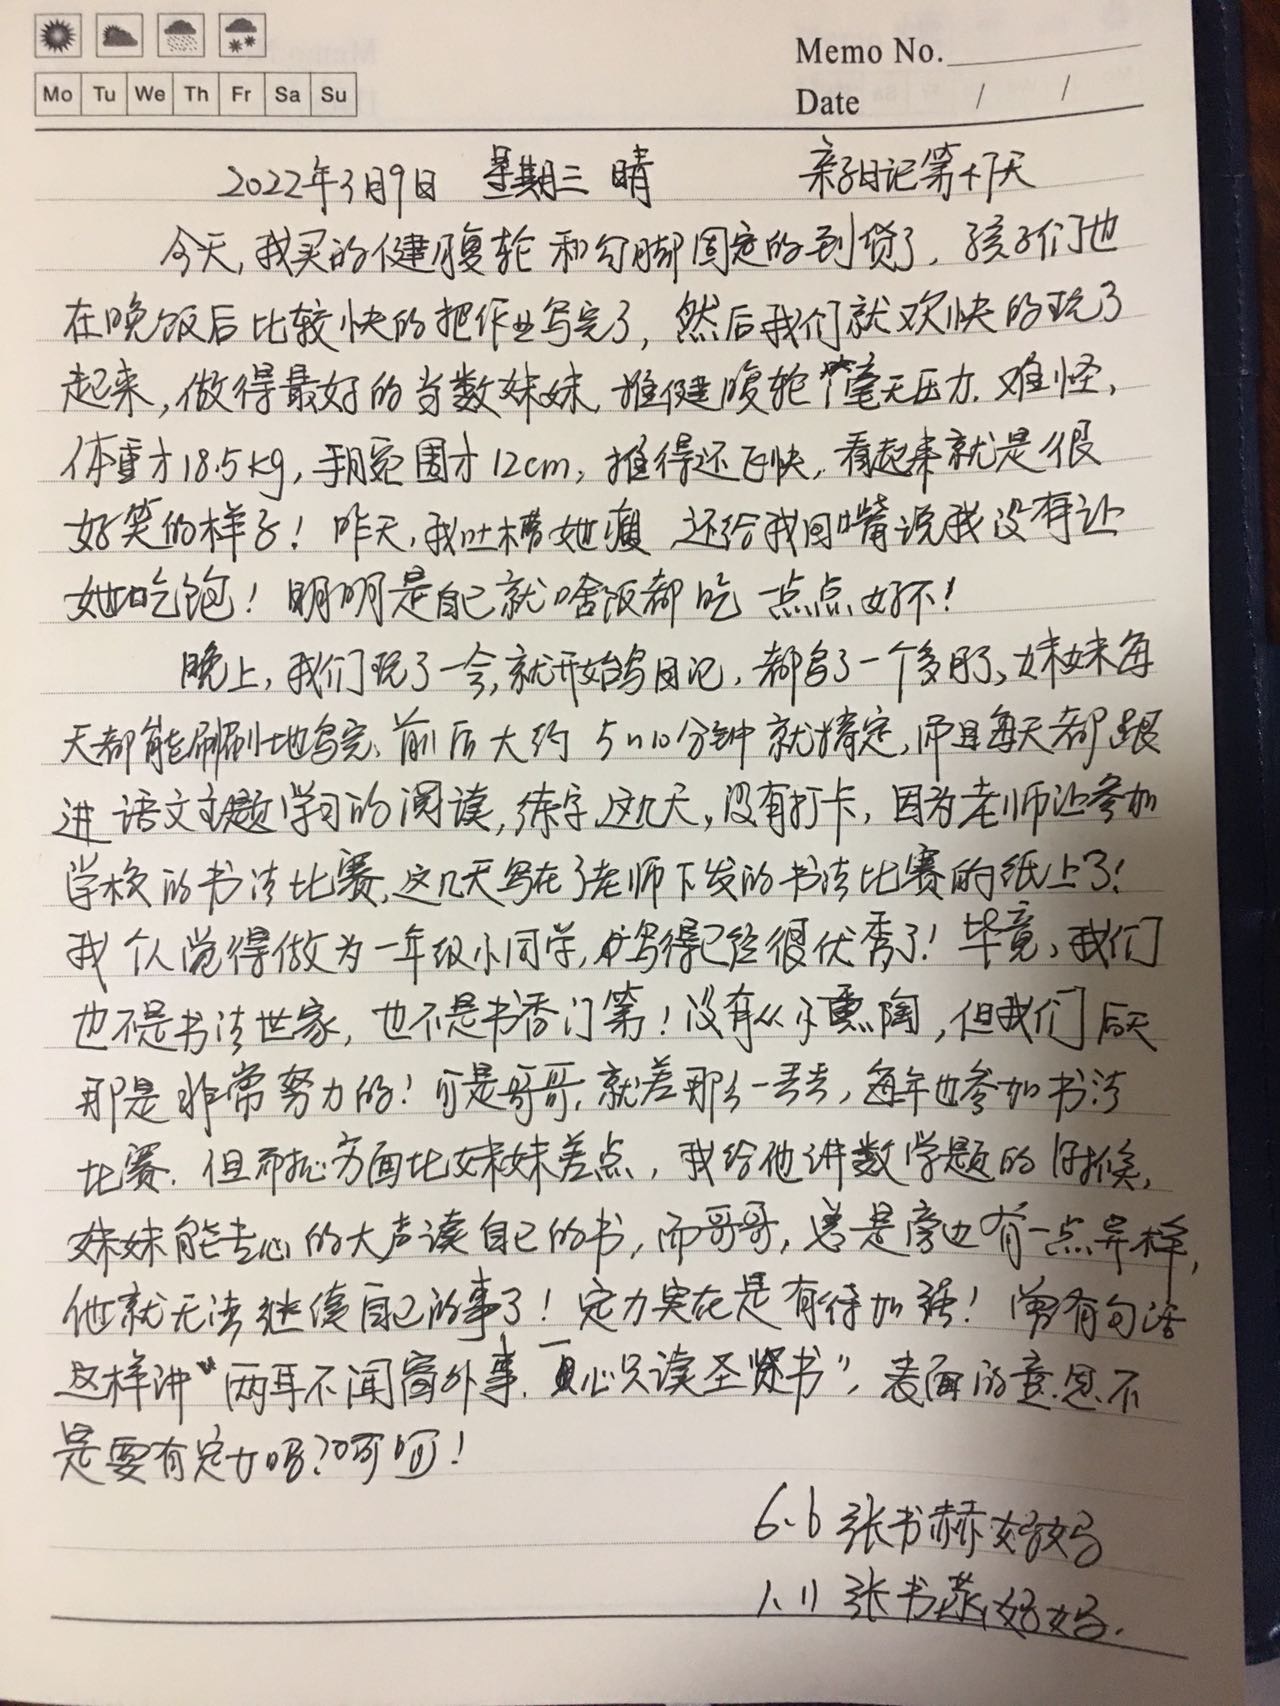 Memo No.
Mo Tu We Th Fr Sa Su
Date / /
2022年3月9日 星期三 晴 亲子日记第 天
今天,我买的健腹轮和勾脚固定的到货了.孩子们也
在晚饭后比较快的把作业写完了,然后我们就欢快的玩了
起来,做得最好的当数妹妹,推健腹轮 毫无压力.难怪,
体重才18.5kg,手腕围才12cm,推得还飞快,看起来就是很
好笑的样子!昨天,我吐槽她瘦 还给我回嘴说我没有让
她吃饱!明明是自己就啥饭都吃一点点,好不!
晚上,我们玩了一会,就开始写日记,都写了一个多月了,妹妹每
天都能刷刷地写完,前后大约5~10分钟就搞定,而且每天都跟
进语文主题学习的阅读,练字这几天,没有打卡,因为老师让参加
学校的书法比赛,这几天写在了老师下发的书法比赛的纸上了!
我个人觉得做为一年级小同学,写得已经很优秀了!毕竟,我们
也不是书法世家,也不是书香门第!没有从小熏陶,但我们后天
那是非常努力的!可是哥哥,就差那么一丢丢,每年也参加书法
比赛.但耐心方面比妹妹差点,我给他讲数学题的时候,
妹妹能专心的大声读自己的书,而哥哥,总是旁边有一点异样,
他就无法继续自己的事了!定力实在是有待加强!曾有句话
这样讲"两耳不闻窗外事,一心只读圣贤书",表面的意思不
是要有定力吗?呵呵!
6.6 张书赫妈妈
1.11 张书燕妈妈.